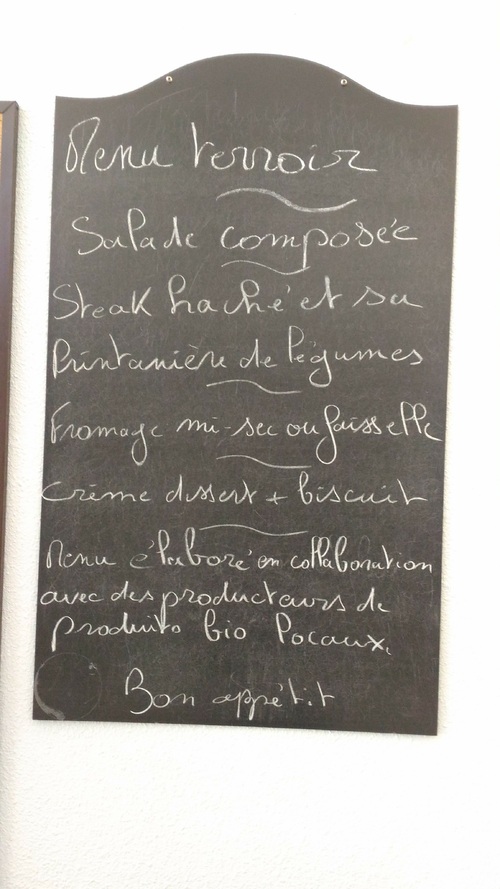 Menu terroir
Salade composée
Steak haché et sa
Printanière de légumes
Fromage mi-sec ou faisselle
Crème dessert + biscuit
Menu élaboré en collaboration
avec des producteurs de
produits bio locaux.
Bon appétit